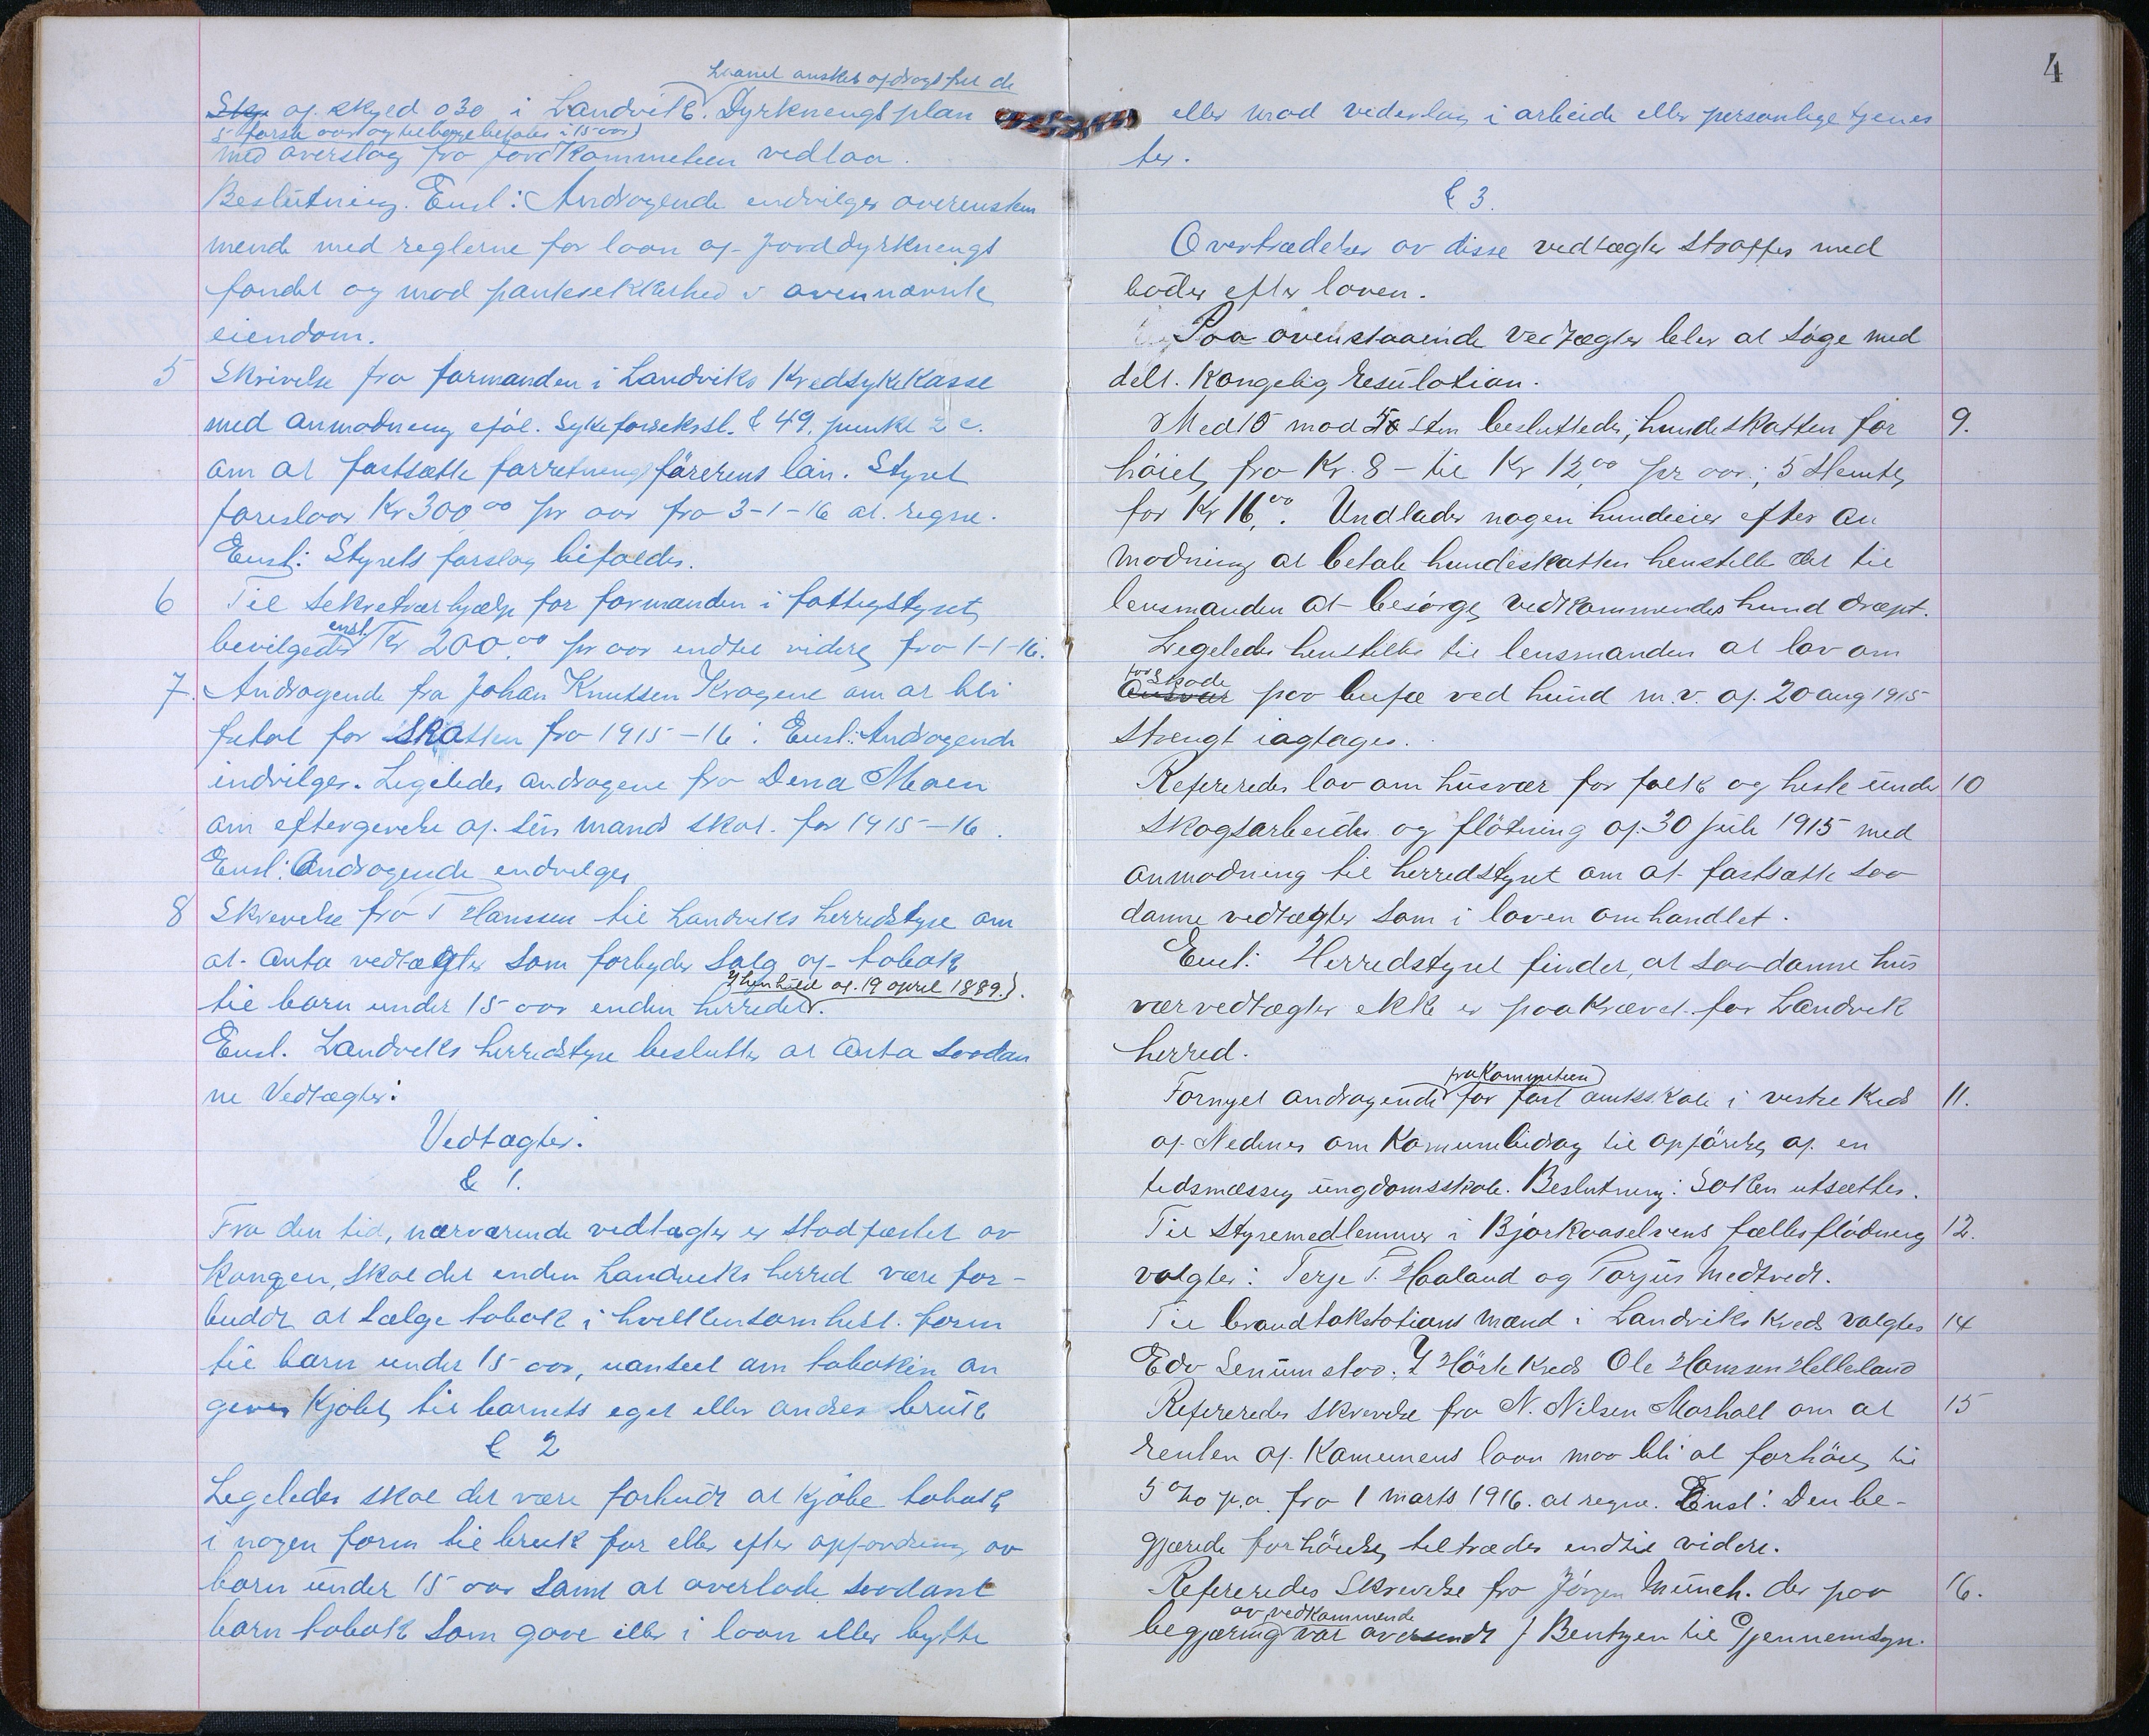 Laanet ønskes afdragsfrit de
Stø af skyld 030 i Landvik. Dyrkningsplan
5 første aar og tilbagebetales i 15 aar)
med overslag fra Jordkommiteen vedlaa.
Beslutning. Enst: Andragende indvilges overenstem
mende med reglerne for laan af Jorddyrknings
fondet og mod pantesikkerhed i ovennævnte
eiendom.
5 Skrivelse fra formanden i Landviks Kredssykekasse
med anmodning iføl. Sykeforsikrsl. § 49. punkt 2 c.
om at fastsætte forretningsførerens løn. Styret
foreslaar Kr 300 00 pr aar fra 3-1-16 at regne.
Enst: Styrets forslag bifaldes.
6 Til sekretærhjælp for formanden i fattigstyret
bevilgedes enst. Kr 200.00 pr aar indtil videre fra 1-1-16.
7. Andragende fra Johan Knutsen Kragene om at bli
fritat for Skatten fra 1915-16: Enst: Andragende
indvilges. Ligeledes andragene fra Dena Moen
om eftergivelse af sin mands skat. for 1915-16.
Enst: Andragende indvilges
8 Skrivelse fra T Hanssen til Landviks herredstyre om
at anta vedtægter som forbyder salg af tobak
I henhold af. 19 april 1889.).
til barn under 15 aar inden herredet.
Enst. Landviks herredstyre beslutter at anta saadan
ne Vedtægter:
Vedtægter.
§ 1.
Fra den tid, nærværende vedtægter er stadfæstet av
kongen, skal det inden Landviks herred være for-
budt at sælge tobak i hvilkensomhelst form
til barn under 15 aar, uanseet om tobakken an
gives kjøbt til barnets eget eller andres bruk
§ 2
Ligeledes skal det være forbudt at kjøbe tobak
i nogen form til bruk for eller efter opfordring av
barn under 15 aar samt at overlade saadant
barn tobak som gave eller i laan eller bytte
4
eller mod vederlag i arbeide eller personlige tjenes
ter.
§ 3.
Overtrædelser av disse vedtægter straffes med
bøder efter loven.
Paa ovenstaaende Vedtægter blev at søge med
delt. Kongelig resulotion.
Med 15 mod 5 stm besluttedes, hundeskatten for 9.
høiet fra Kr. 8 - til Kr 12,00 pr aar; 5 stemte
for Kr 16,00. Undlader nogen hundeeier efter an
modning at betale hundeskatten henstilles det til
lensmanden at besørge vedkommendes hund dræpt.
Legeledes henstilles til lensmanden at lov om
for skade
Ansvar paa bufæ ved hund m.v. af. 20 aug 1915
strengt iagtages.
Refereredes lov om husvær for folk og heste under 10
skogsarbeide og flötning af. 30 juli 1915 med
anmodning til herredstyret om at fastsætte saa
danne vedtægter som i loven omhandlet.
Enst: Herredstyret finder, at saadanne hus
værvedtægter ikke er paakrævet for Landvik
herred.
fra Kommiteen)
Fornyet andragende for fast amtsskole i vestre Kreds 11.
af Nedenes om Kommunebidrag til opførelse af en
tidsmæssig ungdomsskole. Beslutning: Saken utsættes.
Til styremedlemmer i Bjørkaaselvens fællesflødning 12.
valgtes: Terje T. Haaland og Torjus Medtveit.
Til brandtakstations mænd i Landviks Kreds valgtes 14
Edv Lenumstad. I Hörte Kreds Ole Hanssen Helleland
Refereredes skrivelse fra N. Nilsen Morholt om at 15
renten af Kommunens laan maa bli at forhöie til
5 % p.a. fra 1 marts 1916. at regne. Enst: Den be-
gjærede forhöielse tiltrædes indtil videre.
Refereredes skrivelse fra Jörgen Münch. der paa 16.
av vedkommende
begjæring var oversendt J Bentzen til Gjennemsyn.